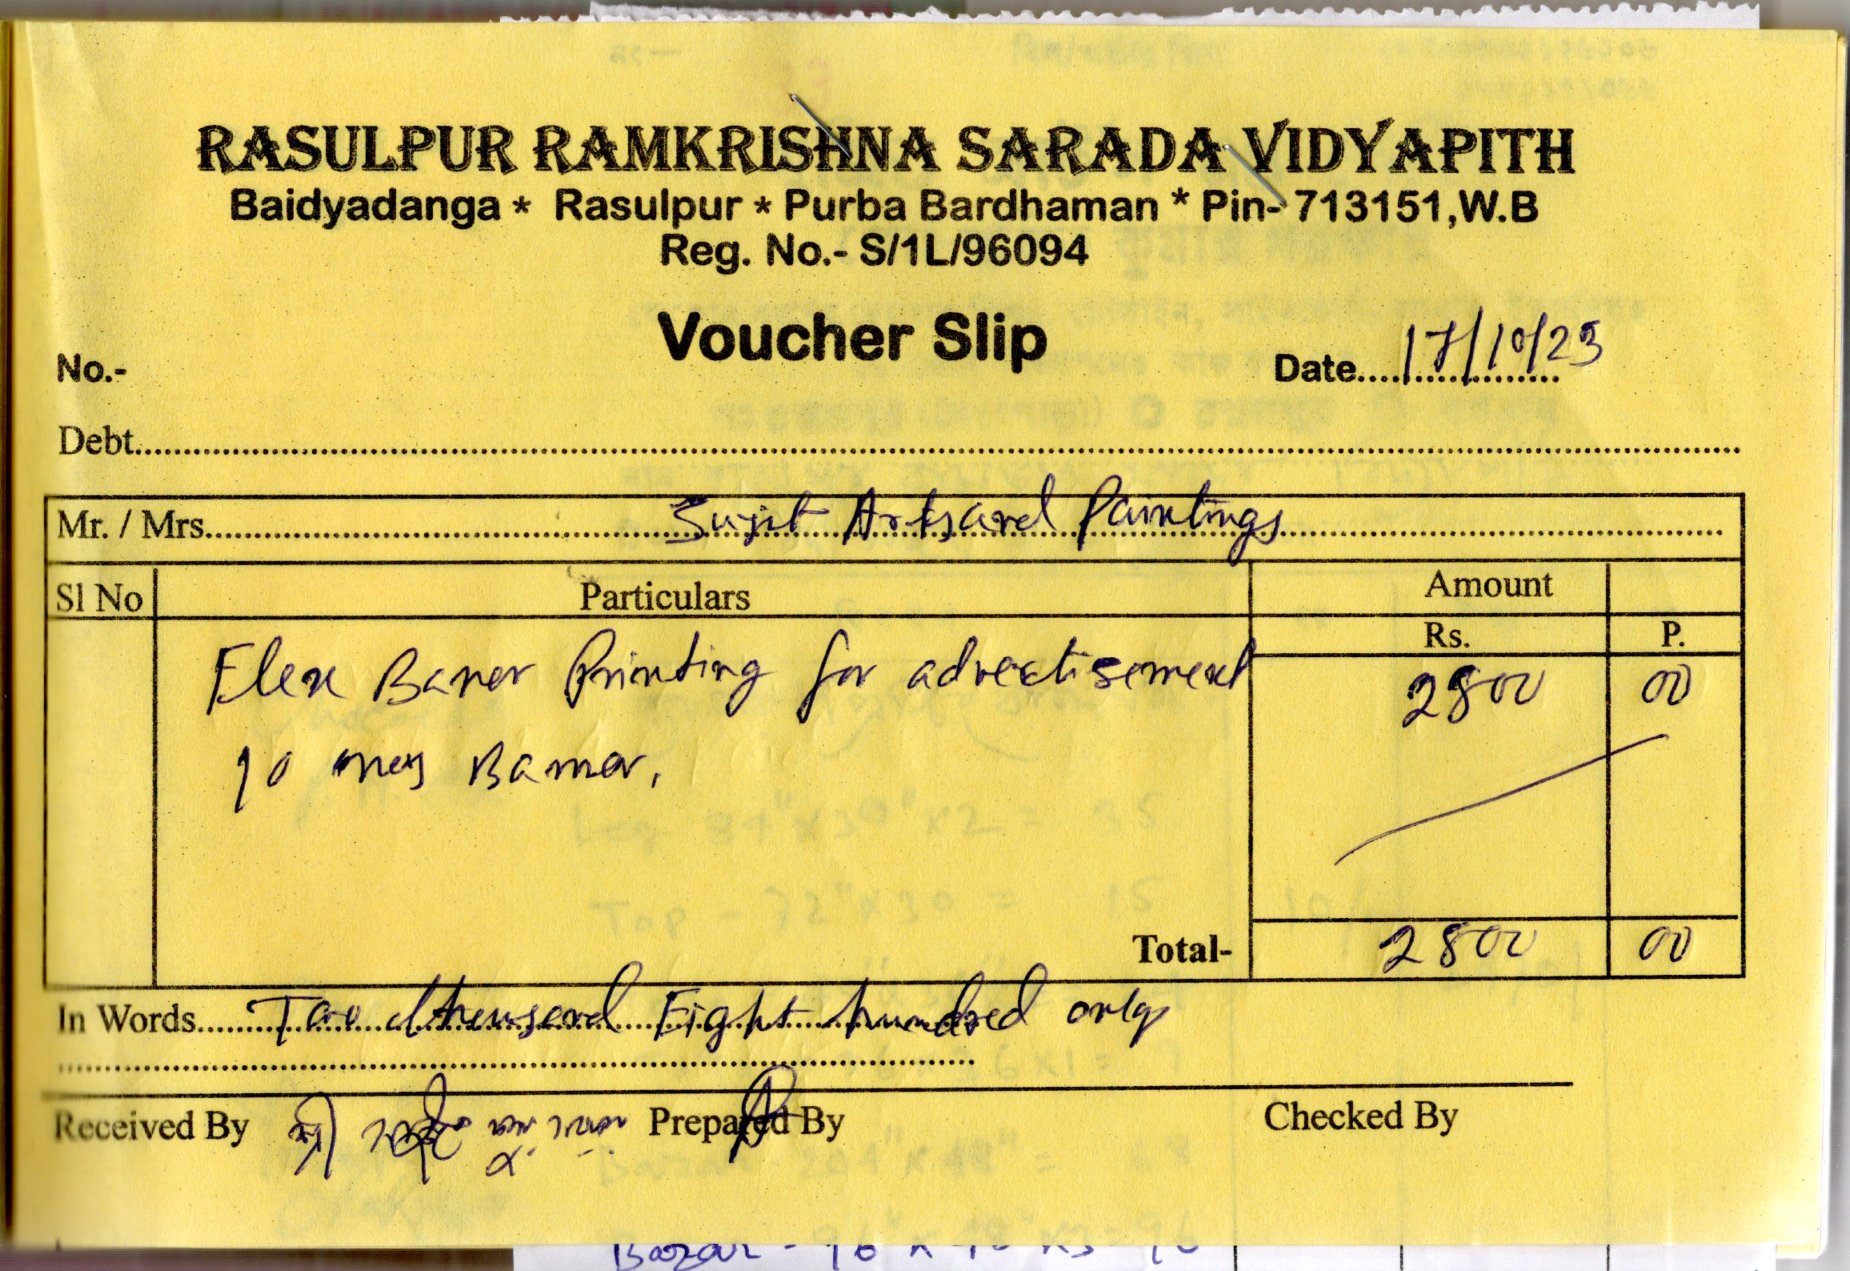 RASULPUR RAMKRISHNA SARADA VIDYAPITH
Baidyadanga * Rasulpur * Purba Bardhaman * Pin- 713151,W.B
Reg. No.- S/1L/96094
Voucher Slip
No.-
Date....17/10/23
Debt.
Mr. / Mrs. Sujit Arts and Paintings
Sl No Particulars Amount
Rs. P.
Flex Baner Printing for advertisement 2800 00
10 Banner.
Total- 2800 00
In Words. Two thousand Eight hundred only
Received By Prepared By Checked By
Bazar - 96" x 48" x 3 = 96